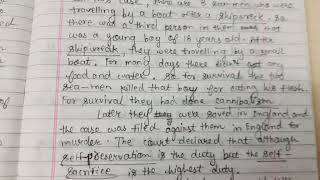 this case, there are 3 sea-men who were
travelling by a boat after a shipwreck. so
there was a third person in the boat who
was a young boy of 18 years old. After
shipwreck, they were travelling by a small
boat. For many days there was not any
food and water. so for survival the two
sea-men killed that boy for eating his flesh.
For survival they had done cannibalism.
later they were saved in England and
the case was filed against them in England for
murder. The court declared that although
self-preservation is the duty but the self-
sacrifice is the highest duty.